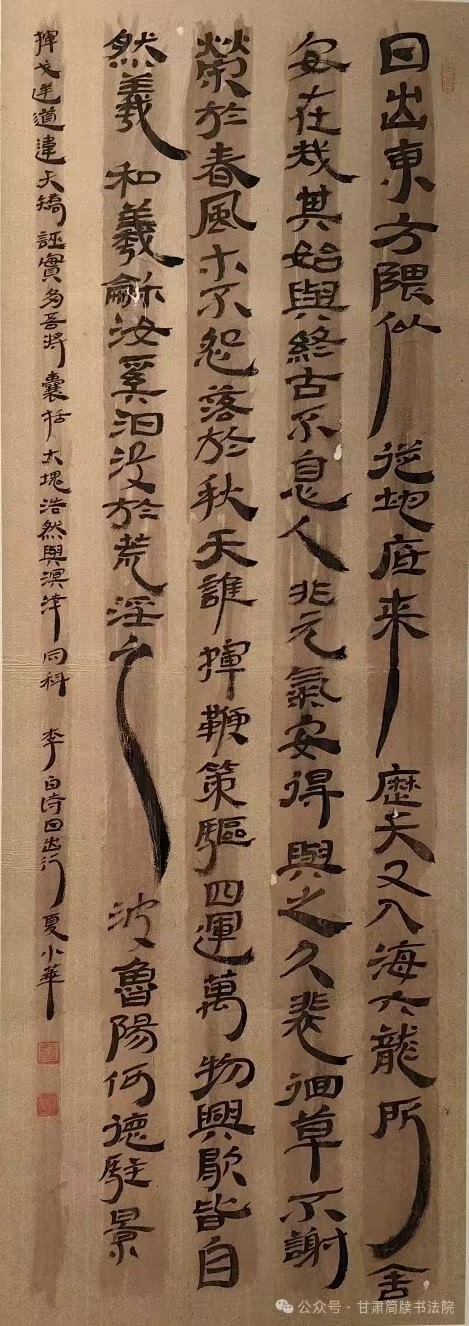 日出東方隈仙從地底来歷天又入海六龍所舍
安在哉其始與終古不息人非元氣安得與之久裴徊草不謝
榮於春風木不怨落於秋天誰揮鞭策驅四運萬物興歇皆自
然羲和羲龢汝奚汩没於荒淫之波魯陽何德駐景
揮戈逆道違天矯誣實多吾將囊括大塊浩然與溟涬同科 李白诗日出行 夏小華
公众号·甘肃简牍书法院